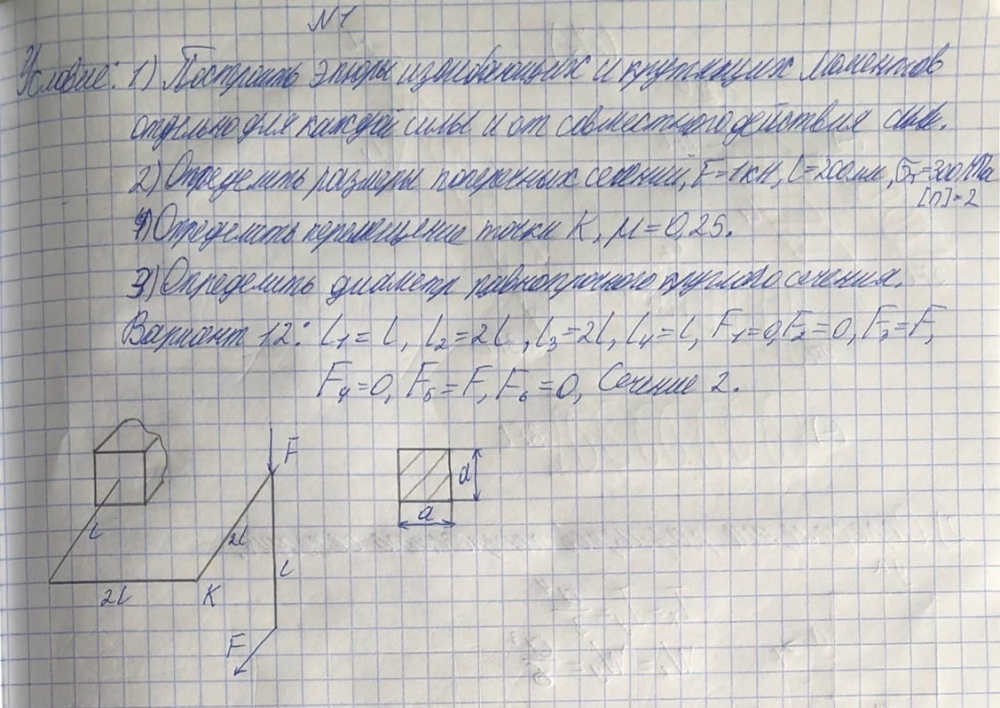 №1
Условие: 1) Построить эпюры изгибающих и крутящих моментов
отдельно для каждой силы и от совместного действия сил.
2) Определить размеры поперечных сечений, F=1кН, l=200мм, σт=300МПа
[n]=2
4) Определить перемещение точки K, μ=0,25.
3) Определить диаметр равнопрочного круглого сечения.
Вариант 12: l₁=l, l₂=2l, l₃=2l, l₄=l, F₁=0, F₂=0, F₃=F,
F₄=0, F₅=F, F₆=0, Сечение 2.
F
a
l
a
2l
l
2l
K
F